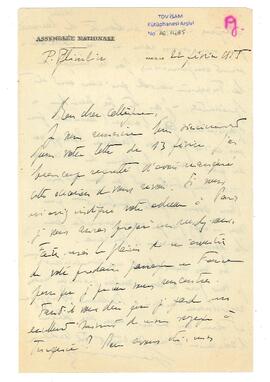 TDV İSAM
Kütüphanesi Arşivi
No
ASSEMBLÉE NATIONALE
P. Pflimlin
22 février 1955
Mon cher Collègue,
Je vous remercie bien vivement
pour votre lettre du 13 février. J'ai
beaucoup regretté d'avoir manqué
cette occasion de vous revoir. Si vous
m'aviez indiqué votre adresse à Paris
je vous aurais proposé un
Faites-moi le plaisir de m'avertir
de votre prochain passage en France
pour que je puisse vous rencontrer.
Faut-il vous dire que je garde un
excellent souvenir de mon voyage en
Turquie ? Nous avons été, mes